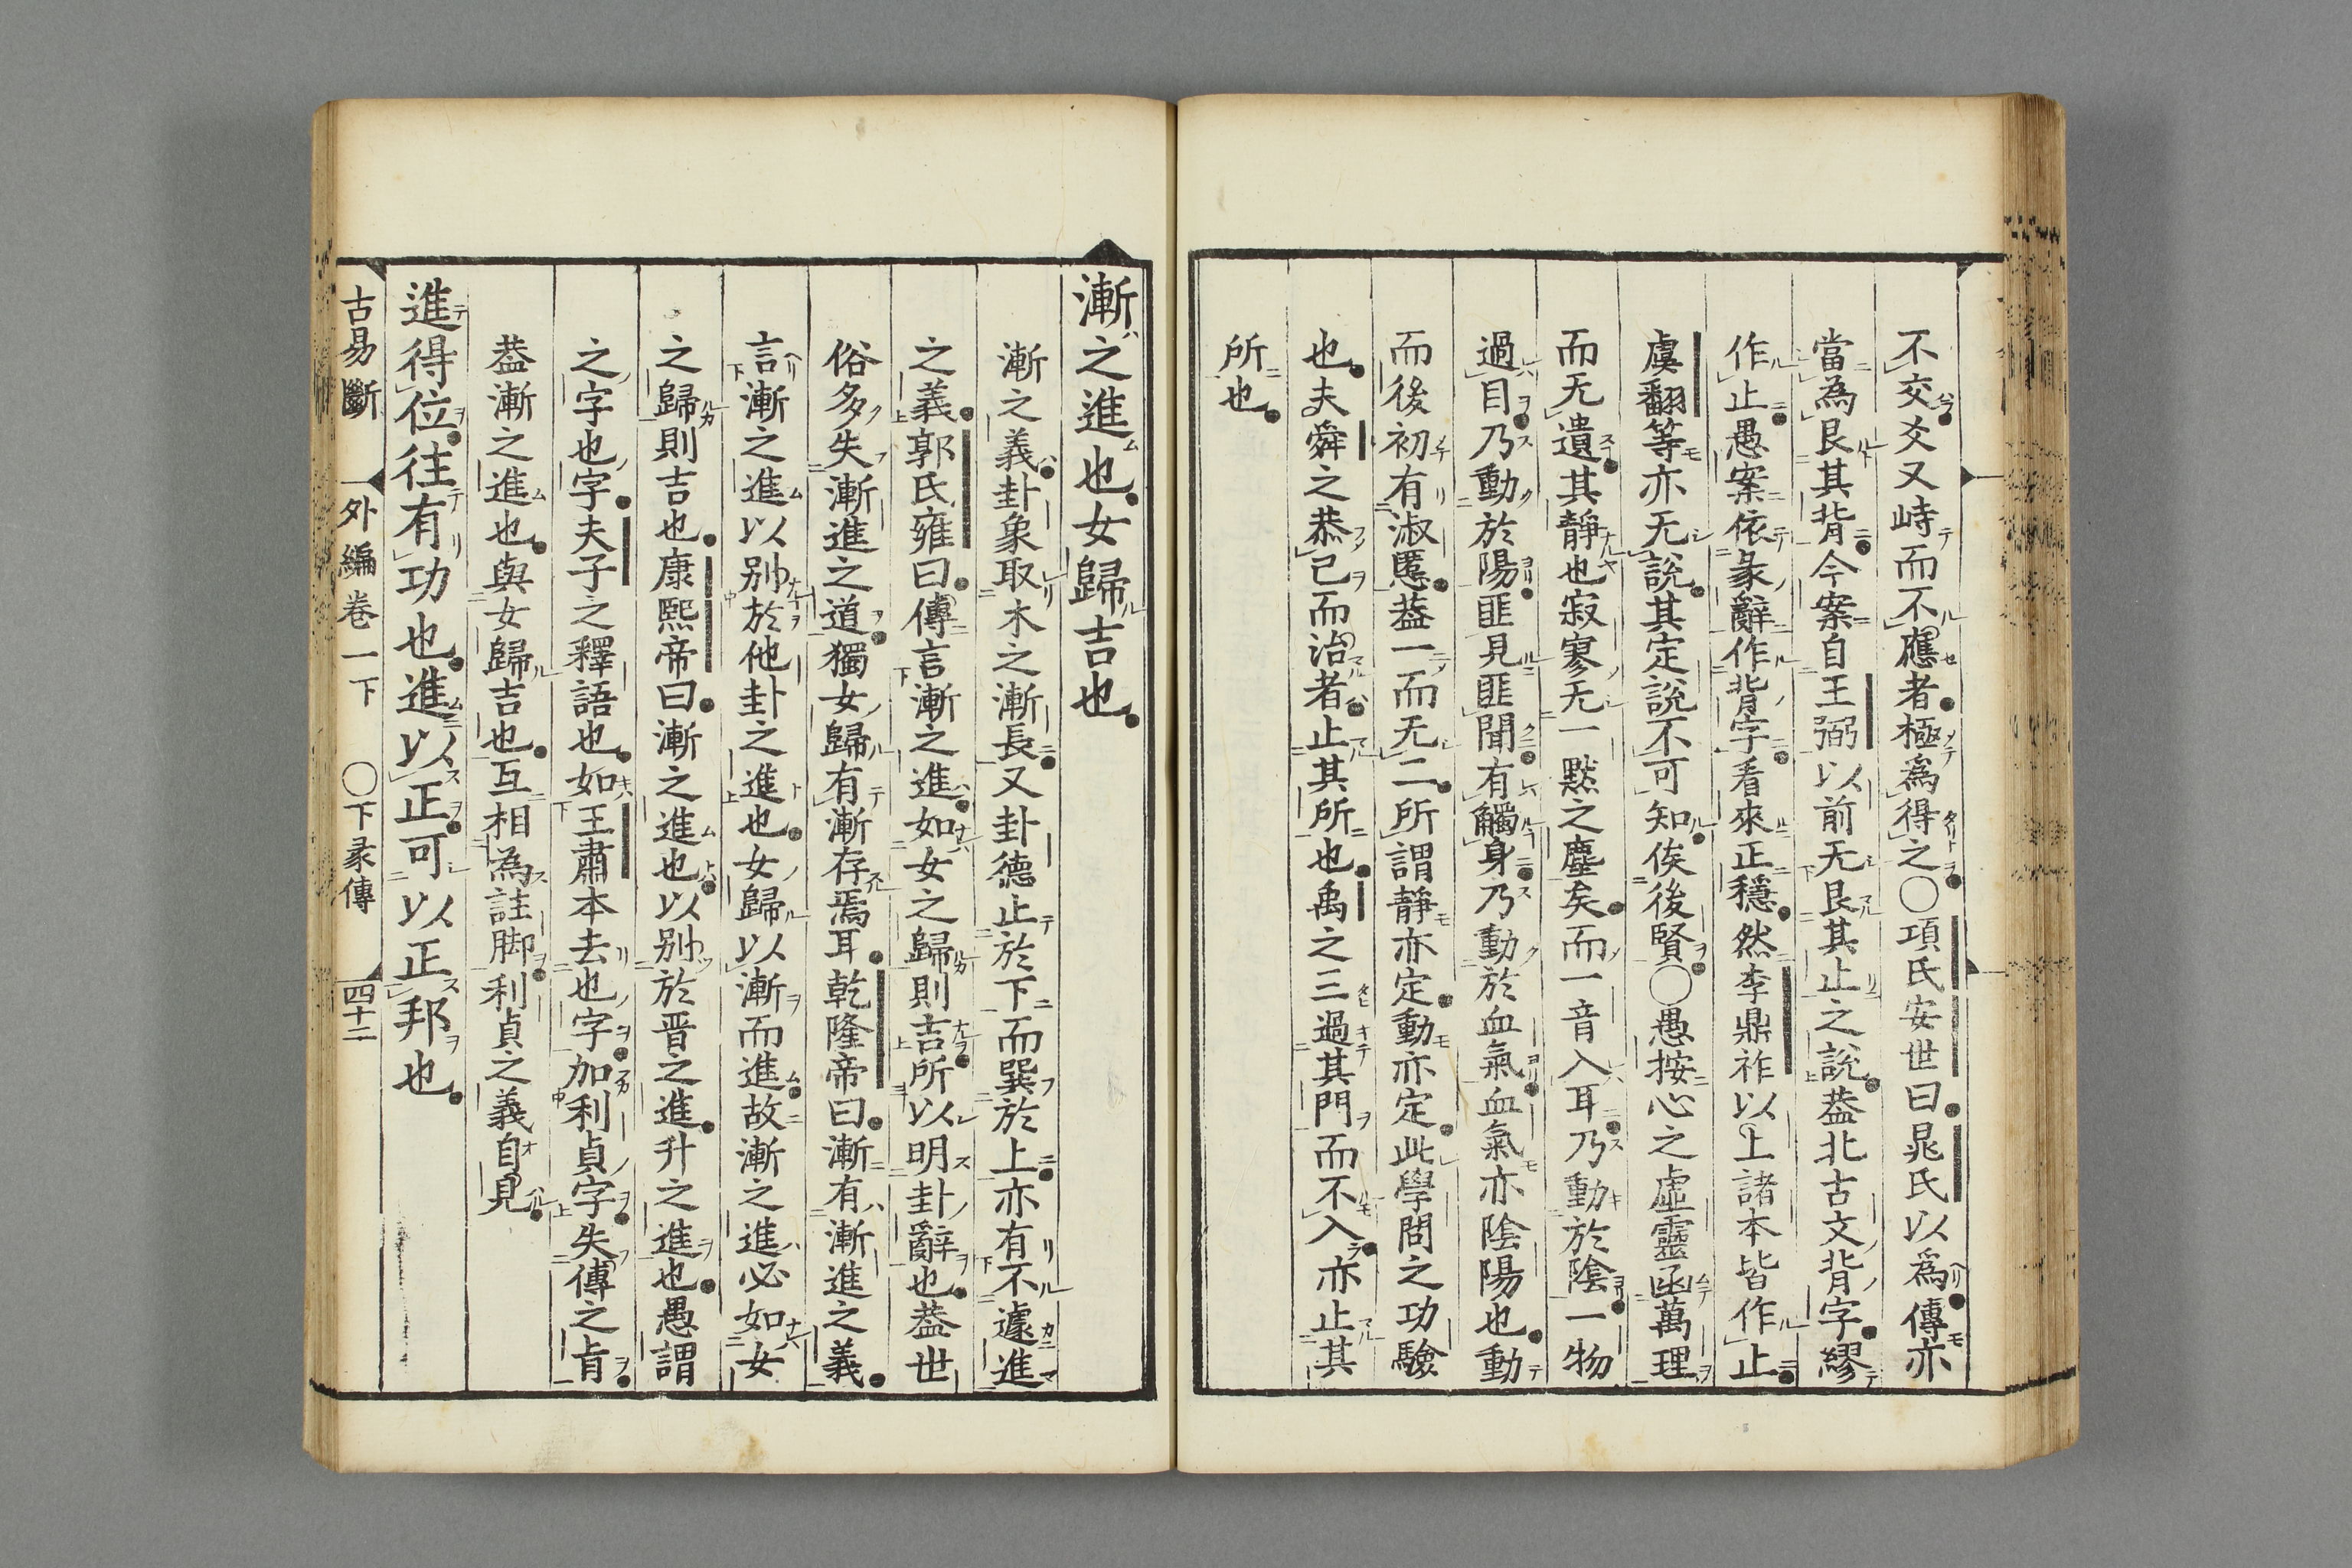 不交爻又峙而不應者極爲得之○項氏安世曰晁氏以爲傳亦
當為艮其背今案自王弼以前无艮其止之說葢北古文背字繆
作止愚案依彖辭作背字看來正穩然李鼎祚以上諸本皆作止
虞翻等亦无說其定說不可知俟後賢○愚按心之虛靈函萬理
而无遺其靜也寂寥无一黙之塵矣而一音入耳乃動於陰一物
過目乃動於陽匪見匪聞有觸身乃動於血氣血氣亦陰陽也動
而後初有淑慝葢一而无二所謂靜亦定動亦定此學問之功驗
也夫舜之恭己而治者止其所也禹之三過其門而不入亦止其
所也
漸之進也女歸吉也
漸之義卦象取木之漸長又卦德止於下而巽於上亦有不遽進
之義郭氏雍曰傳言漸之進如女之歸則吉所以明卦辭也葢世
俗多失漸進之道獨女歸有漸存焉耳乾隆帝曰漸有漸進之義
言漸之進以别於他卦之進也女歸以漸而進故漸之進必如女
之歸則吉也康熙帝曰漸之進也以别於晋之進升之進也愚謂
之字也字夫子之釋語也如王肅本去也字加利貞字失傳之㫖
葢漸之進也與女歸吉也互相為註脚利貞之義自見
進得位往有功也進以正可以正邦也
古易斷 外編卷一下 ○下彖傳 四十二